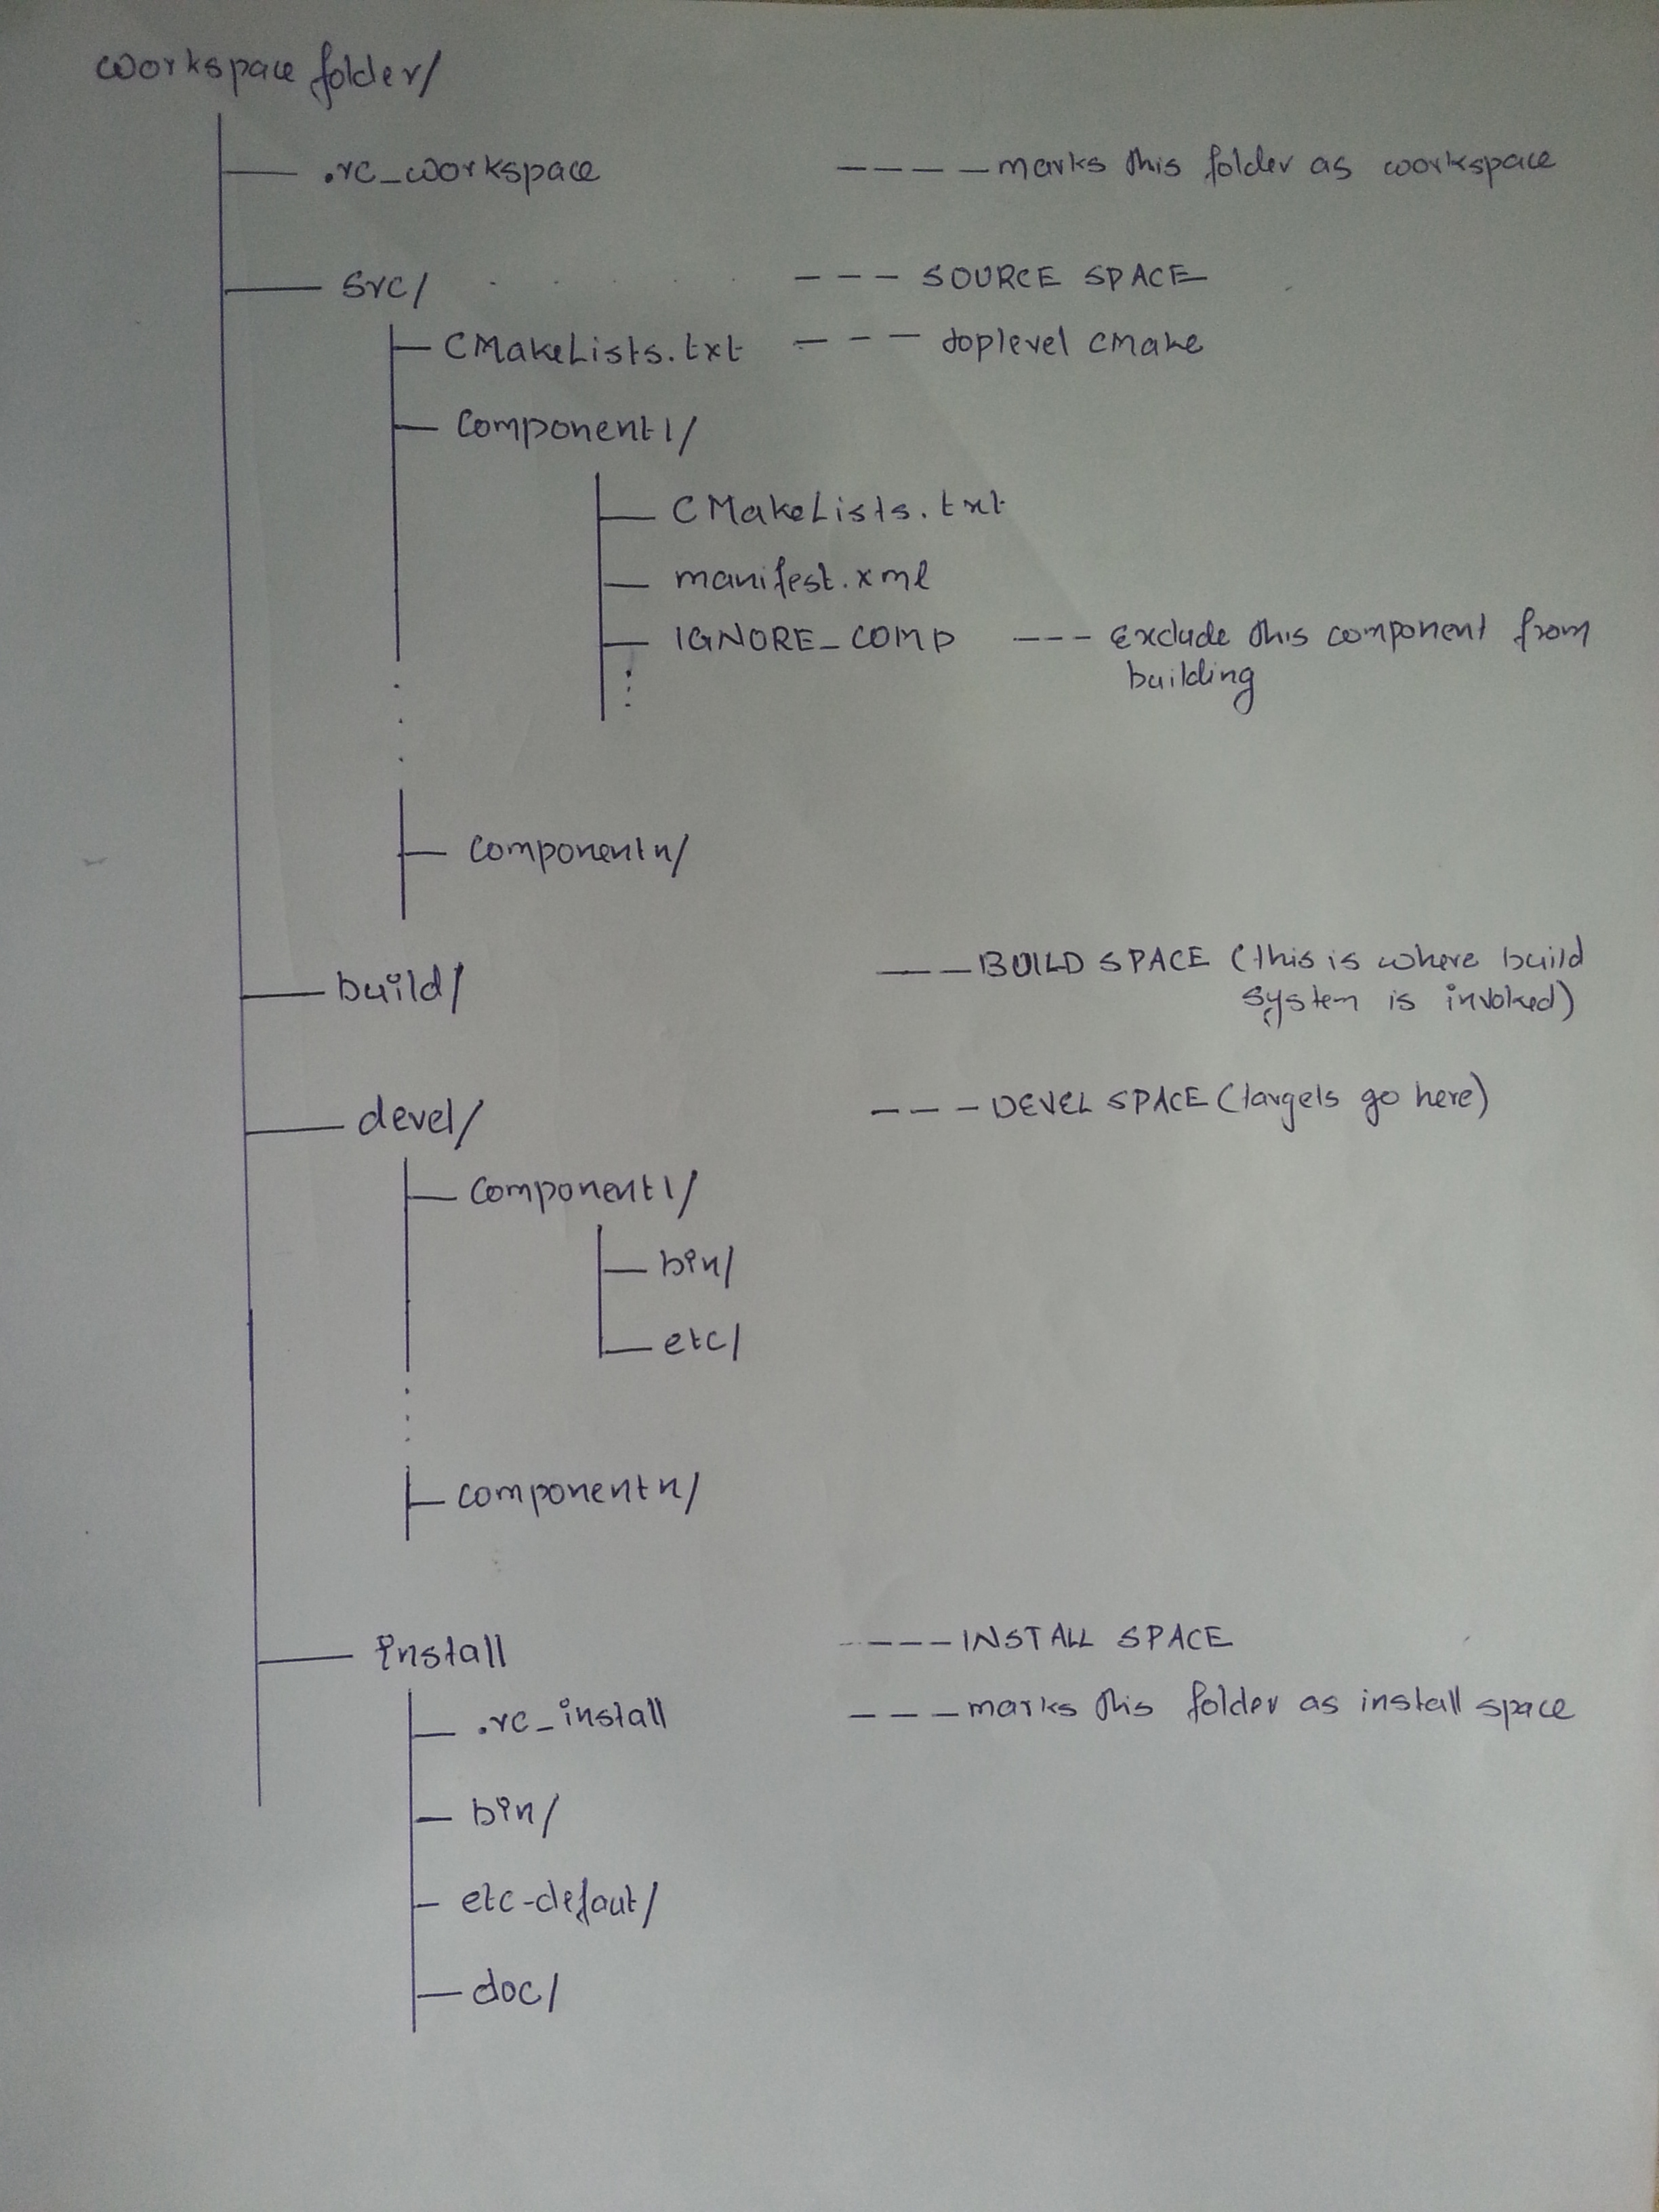 workspace folder/
.rc_workspace ---- marks this folder as workspace
src/ --- SOURCE SPACE
CMakeLists.txt --- toplevel cmake
component1/
CMakeLists.txt
manifest.xml
IGNORE_COMP --- Exclude this component from
building
componentn/
build/ --- BUILD SPACE (this is where build
system is invoked)
devel/ --- DEVEL SPACE (targets go here)
component1/
bin/
etc/
componentn/
install ---- INSTALL SPACE
.rc_install --- marks this folder as install space
bin/
etc-defaut/
doc/